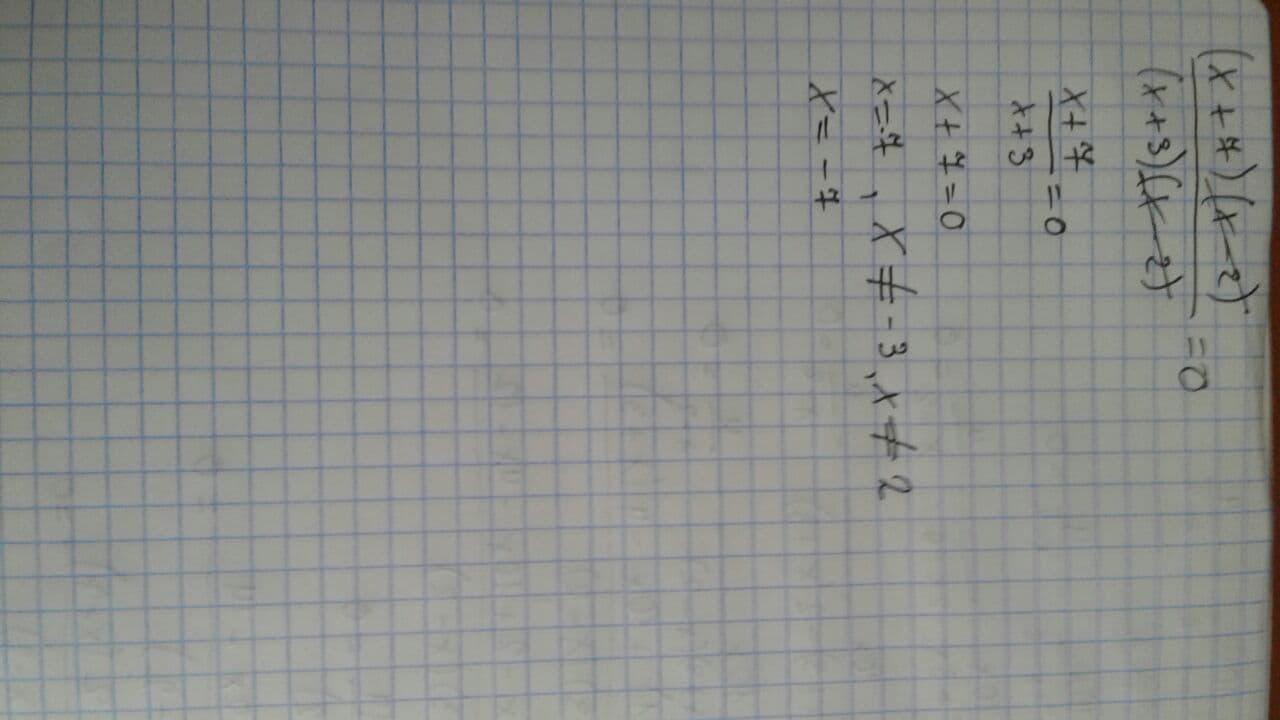 (x+7)(x-2)
/(x+3)(x-2) =0
x+7
/x+3 =0
x+7=0
x=-7, x≠-3, x≠2
x=-7